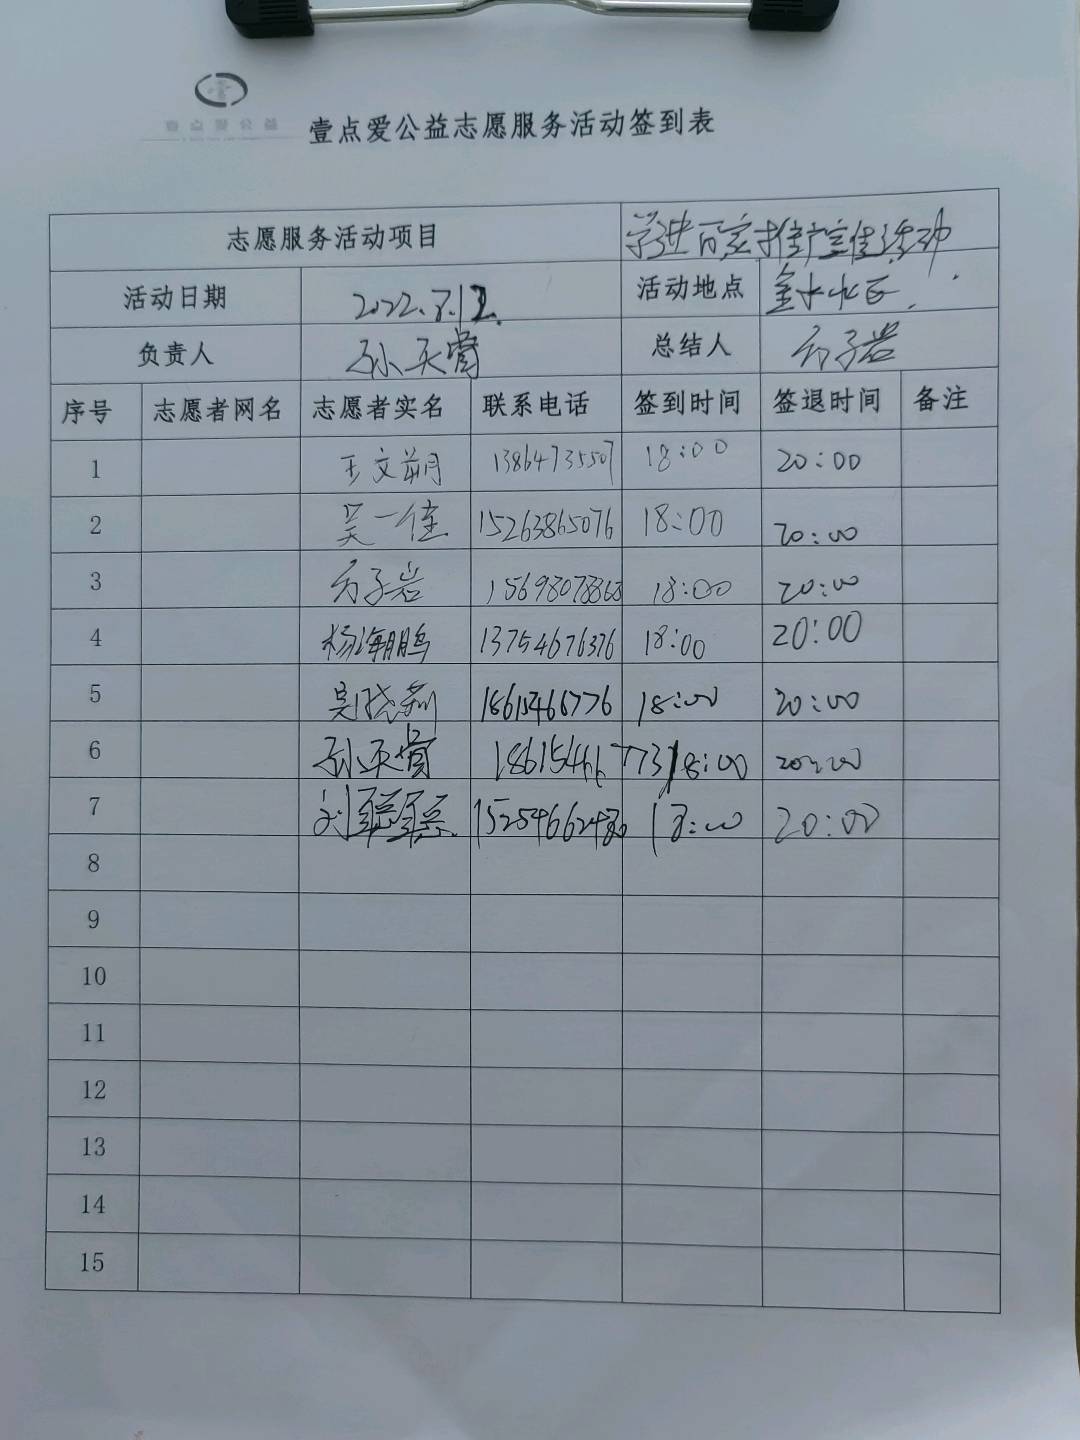 壹点爱公益
壹点爱公益志愿服务活动签到表
志愿服务活动项目 推广宣传活动
活动日期 2022.8.12. 活动地点 金水小区.
负责人 孙天 总结人 方子岩
序号 志愿者网名 志愿者实名 联系电话 签到时间 签退时间 备注
1 王文 13864735507 18:00 20:00
2 吴一佳 15263865076 18:00 20:00
3 方子岩 18:00 20:00
4 杨海鹏 13754676376 18:00 20:00
5 吴晓莉 18615466776 18:00 20:00
6 孙天 18615466773 18:00 20:00
7 刘 18:00 20:00
8
9
10
11
12
13
14
15